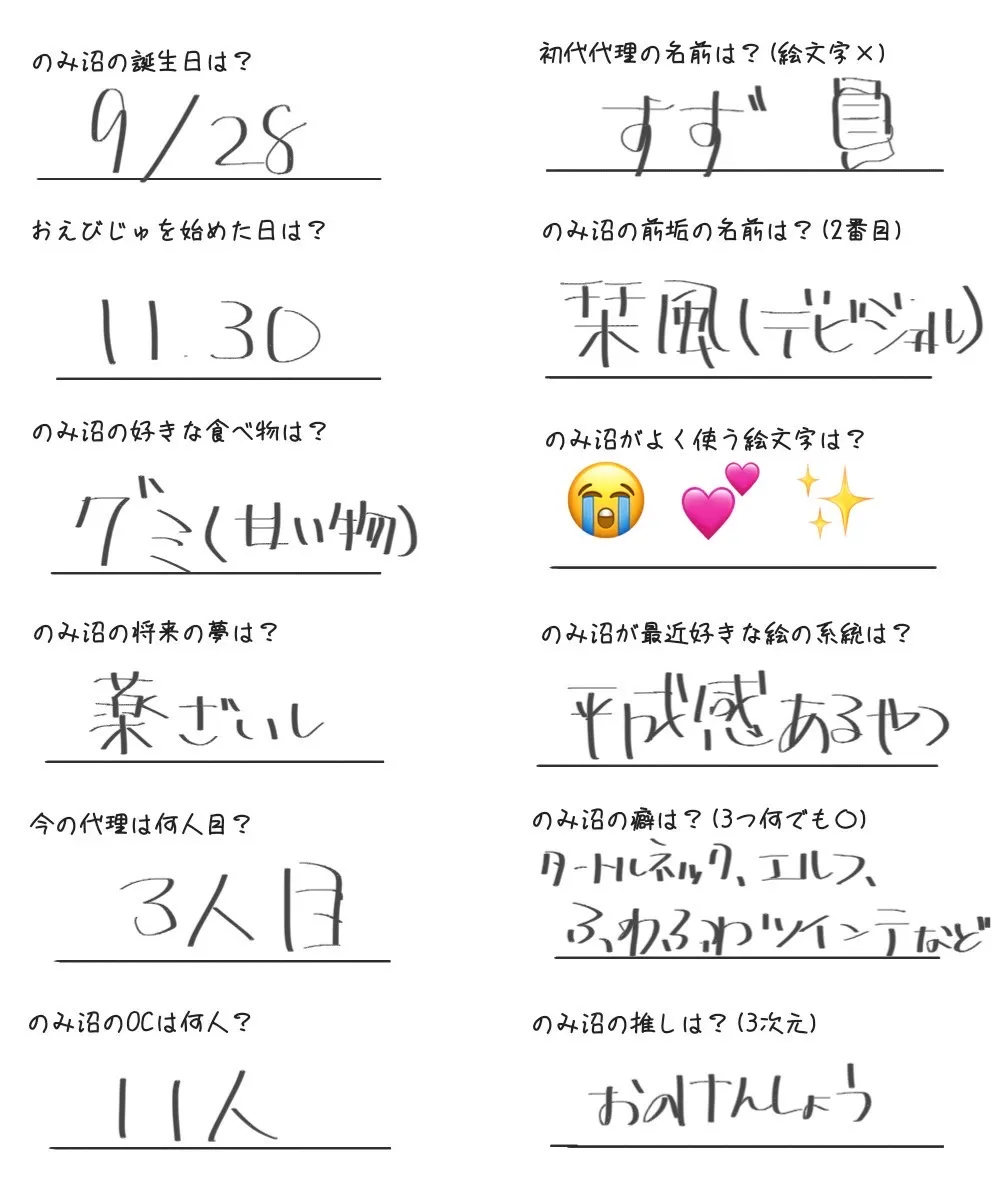 のみ沼の誕生日は？
9/28
おえびじゅを始めた日は？
11.30
のみ沼の好きな食べ物は？
グミ(甘い物)
のみ沼の将来の夢は？
薬ざいし
今の代理は何人目？
3人目
のみ沼のOCは何人？
11人
初代代理の名前は？(絵文字×)
すず
のみ沼の前垢の名前は？(2番目)
栞風(デビジュル)
のみ沼がよく使う絵文字は？
😭 💕 ✨
のみ沼が最近好きな絵の系統は？
平成感あるやつ
のみ沼の癖は？(3つ何でも〇)
タートルネック、エルフ、
ふわふわツインテなど
のみ沼の推しは？(3次元)
おのけんしょう